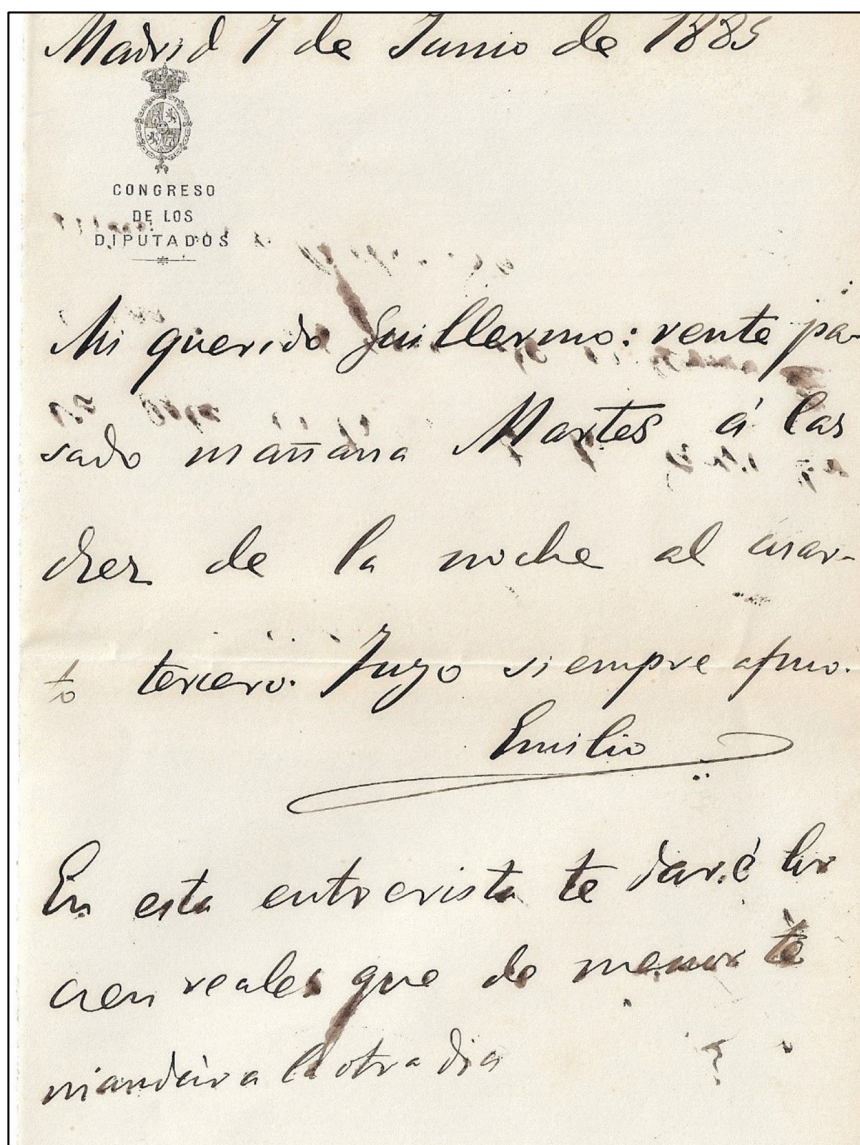 Madrid 7 de Junio de 1885
CONGRESO
DE LOS
DIPUTADOS
Mi querido Guillermo: vente pa-
sado mañana Martes á las
diez de la noche al cuar-
to tercero. Tuyo siempre afmo.
Emilio
En esta entrevista te daré los
cien reales que de menos te
mandára el otro dia